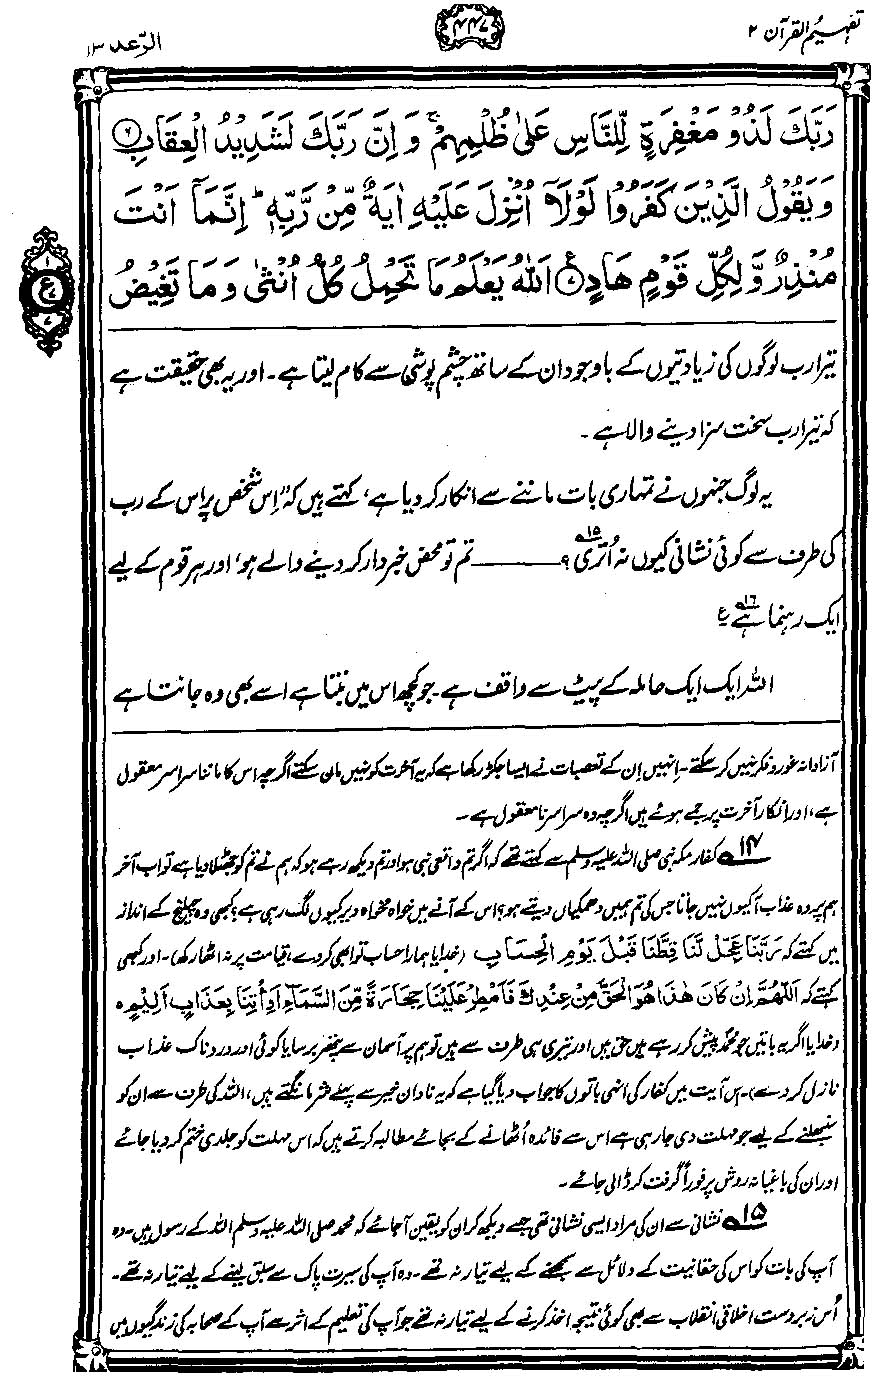 تفہیم القرآن ۲
۴۴۷
الرّعد ۱۳
رَبَّكَ لَذُوْ مَغْفِرَةٍ لِّلنَّاسِ عَلٰى ظُلْمِهِمْ ۚ وَ اِنَّ رَبَّكَ لَشَدِيْدُ الْعِقَابِ ۶
وَ يَقُوْلُ الَّذِيْنَ كَفَرُوْا لَوْلَاۤ اُنْزِلَ عَلَيْهِ اٰيَةٌ مِّنْ رَّبِّهٖ ؕ اِنَّمَاۤ اَنْتَ
مُنْذِرٌ وَّ لِكُلِّ قَوْمٍ هَادٍ ۷ اَللّٰهُ يَعْلَمُ مَا تَحْمِلُ كُلُّ اُنْثٰى وَ مَا تَغِيْضُ
۱
ع
۷
تیرا رب لوگوں کی زیادتیوں کے باوجود ان کے ساتھ چشم پوشی سے کام لیتا ہے۔ اور یہ بھی حقیقت ہے
کہ تیرا رب سخت سزا دینے والا ہے۔
یہ لوگ جنہوں نے تمہاری بات ماننے سے انکار کر دیا ہے، کہتے ہیں کہ "اِس شخص پر اس کے رب
کی طرف سے کوئی نشانی کیوں نہ اُتری ۱۵؟ ——— تم تو محض خبردار کر دینے والے ہو، اور ہر قوم کے لیے
ایک رہنما ہے ۱۶ ع
اللہ ایک ایک حاملہ کے پیٹ سے واقف ہے۔ جو کچھ اس میں بنتا ہے اسے بھی وہ جانتا ہے
آزادانہ غور و فکر نہیں کر سکتے۔ اِنہیں اِن کے تعصبات نے ایسا جکڑ رکھا ہے کہ یہ آخرت کو نہیں مان سکتے اگرچہ اس کا ماننا سراسر معقول
ہے، اور انکار آخرت پر جمے ہوئے ہیں اگرچہ وہ سراسر نامعقول ہے۔
۱۴ کفار مکہ نبی صلی اللہ علیہ وسلم سے کہتے تھے کہ اگر تم واقعی نبی ہو اور تم دیکھ رہے ہو کہ ہم نے تم کو جھٹلا دیا ہے تو اب آخر
ہم پر وہ عذاب آ کیوں نہیں جاتا جس کی تم ہمیں دھمکیاں دیتے ہو؟ اس کے آنے میں خواہ مخواہ دیر کیوں لگ رہی ہے؟ کبھی وہ چیلنج کے انداز
میں کہتے کہ رَبَّنَا عَجِّلْ لَّنَا قِطَّنَا قَبْلَ يَوْمِ الْحِسَابِ (خدایا ہمارا حساب تو ابھی کر دے، قیامت پر نہ اٹھا رکھ)۔ اور کبھی
کہتے کہ اَللّٰهُمَّ اِنْ كَانَ هٰذَا هُوَ الْحَقَّ مِنْ عِنْدِكَ فَاَمْطِرْ عَلَيْنَا حِجَارَةً مِّنَ السَّمَآءِ اَوِ ائْتِنَا بِعَذَابٍ اَلِيْمٍ ہ
(خدایا اگر یہ باتیں جو محمدؐ پیش کر رہے ہیں حق ہیں اور تیری ہی طرف سے ہیں تو ہم پر آسمان سے پتھر برسا یا کوئی اور دردناک عذاب
نازل کر دے)۔ اِس آیت میں کفار کی انہی باتوں کا جواب دیا گیا ہے کہ یہ نادان خیر سے پہلے شر مانگتے ہیں، اللہ کی طرف سے ان کو
سنبھلنے کے لیے جو مہلت دی جا رہی ہے اس سے فائدہ اُٹھانے کے بجائے مطالبہ کرتے ہیں کہ اس مہلت کو جلدی ختم کر دیا جائے
اور ان کی باغیانہ روش پر فوراً گرفت کر ڈالی جائے۔
۱۵ نشانی سے ان کی مراد ایسی نشانی تھی جسے دیکھ کر ان کو یقین آ جائے کہ محمد صلی اللہ علیہ وسلم اللہ کے رسول ہیں۔ وہ
آپ کی بات کو اس کی حقانیت کے دلائل سے سمجھنے کے لیے تیار نہ تھے۔ وہ آپ کی سیرت پاک سے سبق لینے کے لیے تیار نہ تھے۔
اُس زبردست اخلاقی انقلاب سے بھی کوئی نتیجہ اخذ کرنے کے لیے تیار نہ تھے جو آپ کی تعلیم کے اثر سے آپ کے صحابہ کی زندگیوں میں